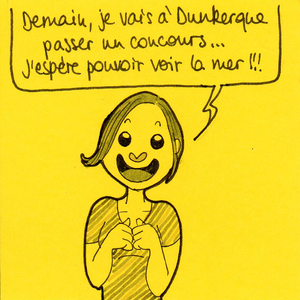 Demain, je vais à Dunkerque
passer un concours...
j'espère pouvoir voir la mer !!!